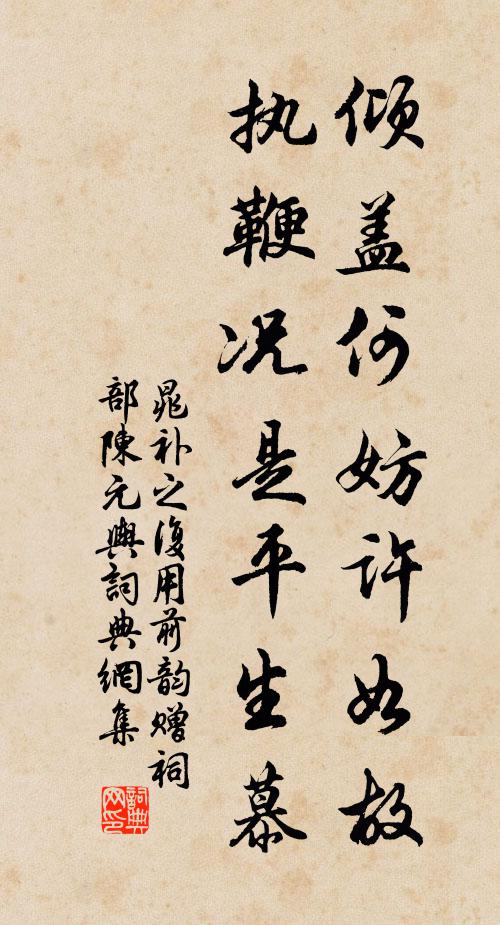 倾盖何妨许如故
执鞭况是平生慕
晁补之復用前韵赠祠
部陳元輿詞典網集
詞典网印